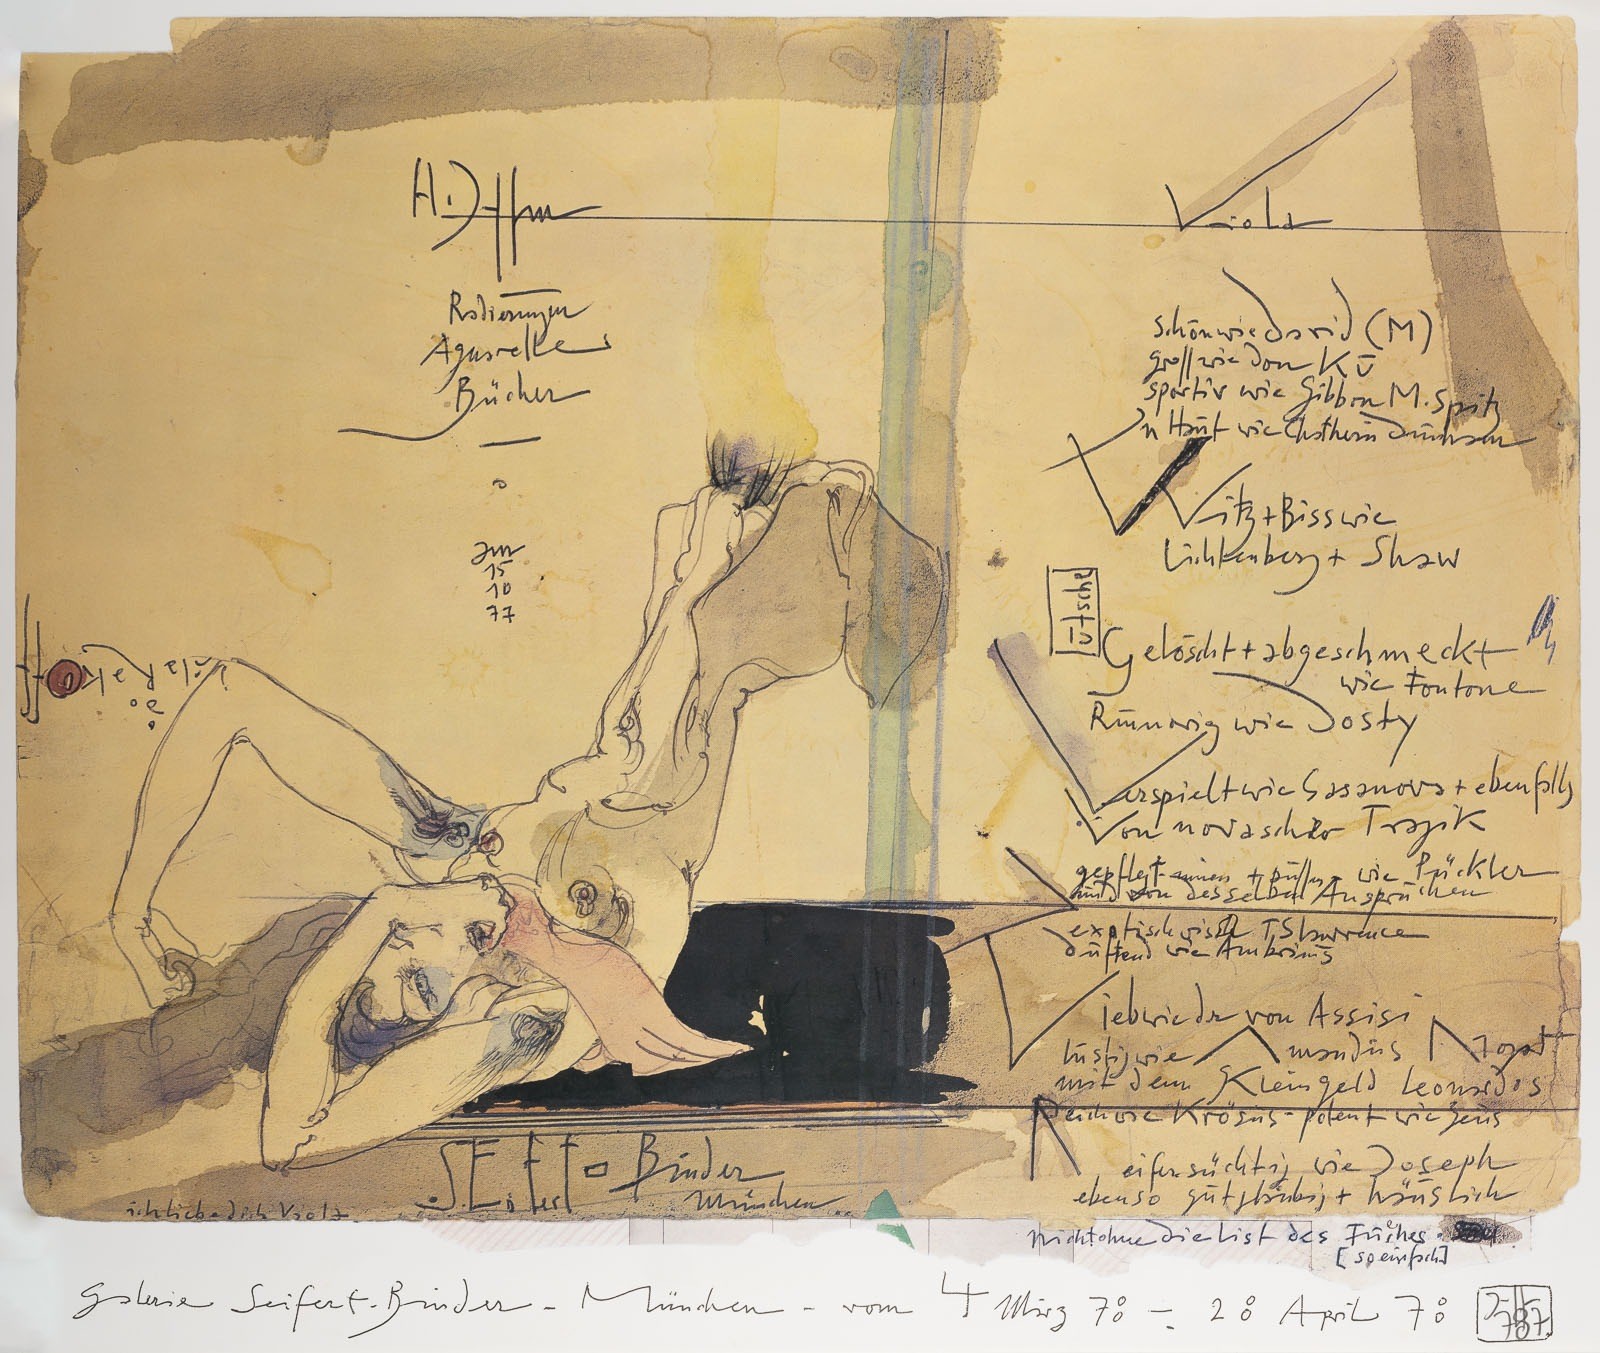 Radierungen
Aquarelle
Bücher
am
15
10
77
Viola
schön wie David (M)
gross wie Don Kū
sportiv wie Gibbon M. Spitz
'n Haut wie
Witz + Biss wie
Lichtenberg + Shaw
Gelöscht + abgeschmeckt
wie Fontane
wie Josty
Verspielt wie Casanova + ebenfalls
von Tragik
gepflegt wie Pückler
und von desselben Ansprüchen
exotisch wie T. S. Lawrence
duftend wie
Lieb wie der von Assisi
lustig wie Amandus Mozart
mit dem Kleingeld Leonardos
Reich wie Krösus - potent wie Zeus
eifersüchtig wie Joseph
ebenso gutgläubig + häuslich
nicht ohne die List des
[so einfach]
Seifert Binder
München
ich liebe dich Viola
Galerie Seifert-Binder - München - vom 4 März 78 - 28 April 78